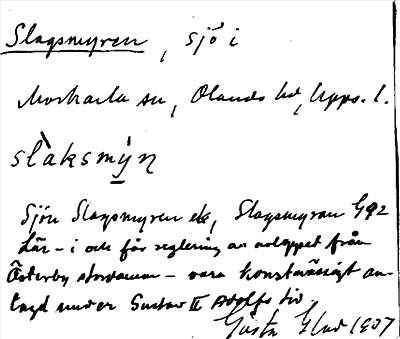 Slagsmyren, sjö i
Morkarla sn, Olands hd, Upps. l.
slàksmýn
Sjön Slagsmyren ek, Slagsmyran G92
Lär – i och för reglering av avloppet från
Österby stordamm – vara konstmässigt an-
lagd under Gustav II Adolfs tid.
Gösta Elvd 1907